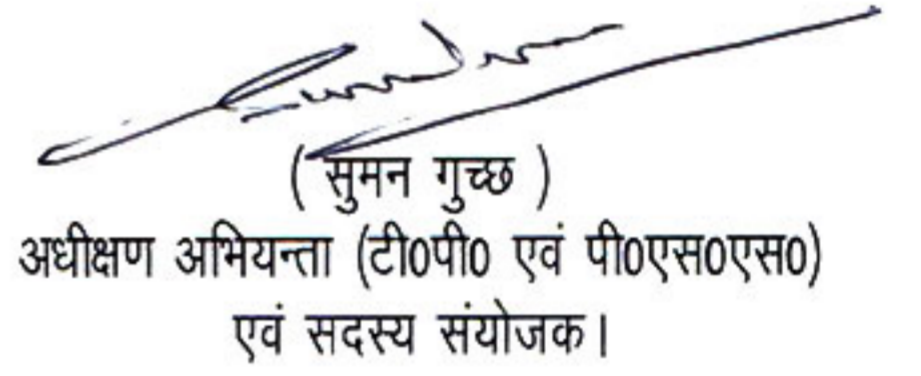 ( सुमन गुच्छ )
अधीक्षण अभियन्ता (टी0पी0 एवं पी0एस0एस0)
एवं सदस्य संयोजक।